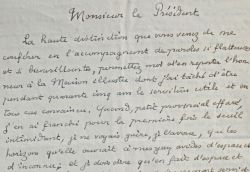 Monsieur le Président
La haute distinction que vous venez de me
conférer en l'accompagnant de paroles si flatteuses
et si bienveillantes, permettez moi d'en reporter l'hon-
neur à la Maison illustre dont j'ai tâché d'être
pendant quarante cinq ans le serviteur utile et en
tous cas convaincu. Quand, petit provincial effaré,
j'en ai franchi pour la première fois le seuil
intimidant, je ne voyais guère, je l'avoue, que les
horizons qu'elle ouvrait à mes yeux avides d'espace et
d'inconnu, et je dois dire qu'en fait d'espace et